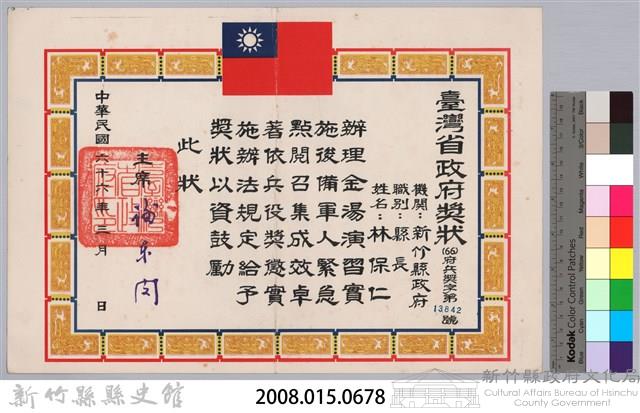 臺灣省政府獎狀
(66)府兵獎字第13842號
機關：新竹縣政府
職別：縣長
姓名：林保仁
辦理金湯演習實
施後備軍人緊急
點閱召集成效卓
著依兵役獎懲實
施辦法規定給予
獎狀以資鼓勵
此狀
主席
中華民國六十六年三月 日
Kodak Color Control Patches
Blue
Cyan
Green
Yellow
Red
Magenta
White
3/Color
Black
新竹縣縣史館
2008.015.0678
新竹縣政府文化局
Cultural Affairs Bureau of Hsinchu
County Government